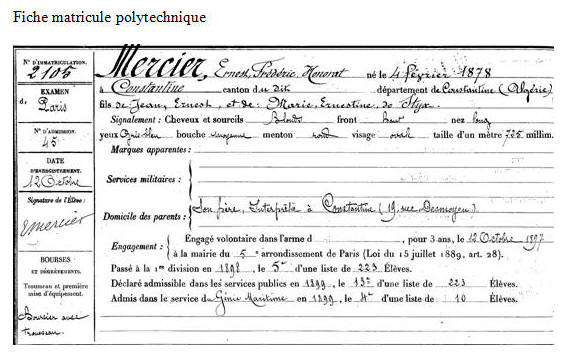 Fiche matricule polytechnique
N° D'IMMATRICULATION.
2105
EXAMEN
DE
Paris
N° D'ADMISSION.
45
DATE
D'ENREGISTREMENT.
12 Octobre
Signature de l'Élève :
EMercier
BOURSES
ET DÉGRÈVEMENTS.
Trousseau et première
mise d'équipement.
Boursier avec
trousseau.
Mercier, Ernest, Frédéric, Honorat né le 4 février 1878
à Constantine canton du dit département de Constantine (Algérie)
fils de Jean, Ernest, et de Marie, Ernestine, de Styx.
Signalement : Cheveux et sourcils Blonds front haut nez long
yeux Gris-bleu bouche moyenne menton rond visage oval taille d'un mètre 725 millim.
Marques apparentes :
Services militaires :
Domicile des parents : Son père, Interprète à Constantine (19 rue Desmoyen).
Engagement : Engagé volontaire dans l'arme d , pour 3 ans, le 12 Octobre 1897
à la mairie du 5e arrondissement de Paris (Loi du 15 juillet 1889, art. 28).
Passé à la 1re division en 1898, le 5e d'une liste de 223 Élèves.
Déclaré admissible dans les services publics en 1899, le 13e d'une liste de 223 Élèves.
Admis dans le service du Génie Maritime en 1899, le 4e d'une liste de 10 Élèves.